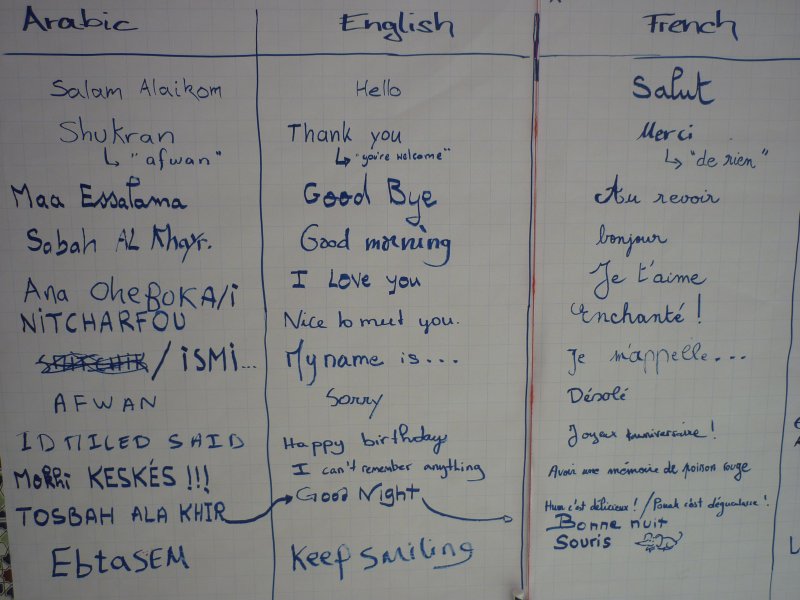 Arabic English French
Salam Alaikom Hello Salut
Shukran Thank you Merci
↳ "afwan" ↳ "you're welcome" ↳ "de rien"
Maa Essalama Good Bye Au revoir
Sabah AL Khayr. Good morning bonjour
Ana OheBOKA/i I Love you Je t'aime
NITCHARFOU Nice to meet you. Enchanté !
/ iSMi... My name is... Je m'appelle...
AFWAN Sorry Désolé
ID MILED SAID Happy birthday Joyeux anniversaire !
MoKhi KESKÉS !!! I can't remember anything Avoir une mémoire de poisson rouge
Hum c'est délicieux ! / Pouah c'est dégueulasse !
TOSBAH ALA KHIR Good Night Bonne nuit
EbtaSEM Keep Smiling Souris